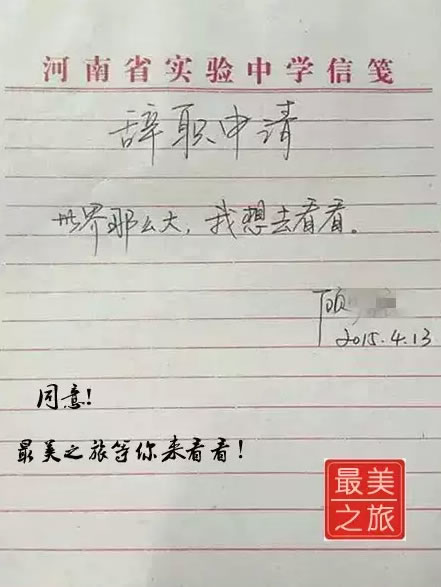 河南省实验中学信笺
辞职申请
世界那么大，我想去看看。
顾
2015.4.13
同意!
最美之旅等你来看看!
最美
之旅